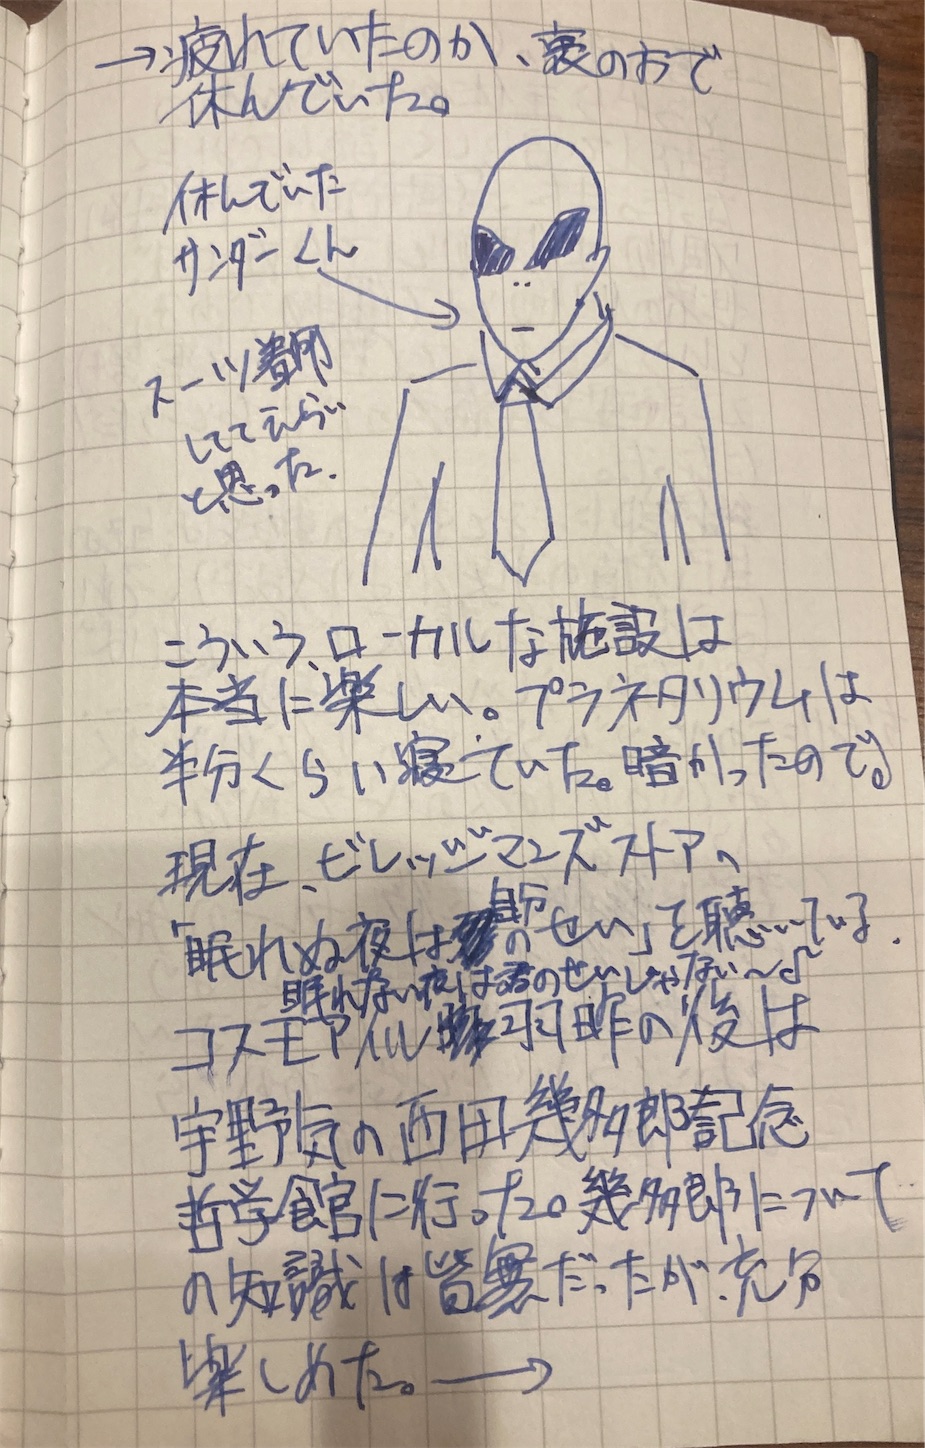 →疲れていたのか、裏のおで
休んでいた。
休んでいた
サンダーくん
スーツ着用
しててえらい
と思った.
こういう、ローカルな施設は
本当に楽しい。プラネタリウムは
半分くらい寝ていた。暗かったので。
現在、ビレッジマンズストア、
「眠れぬ夜は自分のせい」を聴いている.
眠れない夜は君のせいじゃない〜♪
コスモアイル羽咋の後は
宇野気の西田幾多郎記念
哲学館に行った。幾多郎について
の知識は皆無だったが、充分
楽しめた。→